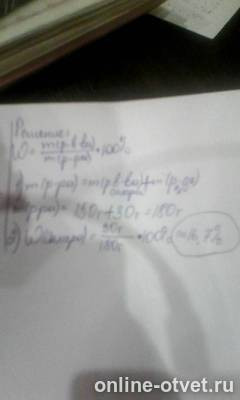 Решение:
W = m(р.в-ва) / m(р-ра) • 100%
1) m(р-ра) = m(р.в-ва) + m
m(р-ра) = 150г + 30г = 180г
2) W(сахара) = 30г / 180г • 100% = 16,7%
online-otvet.ru